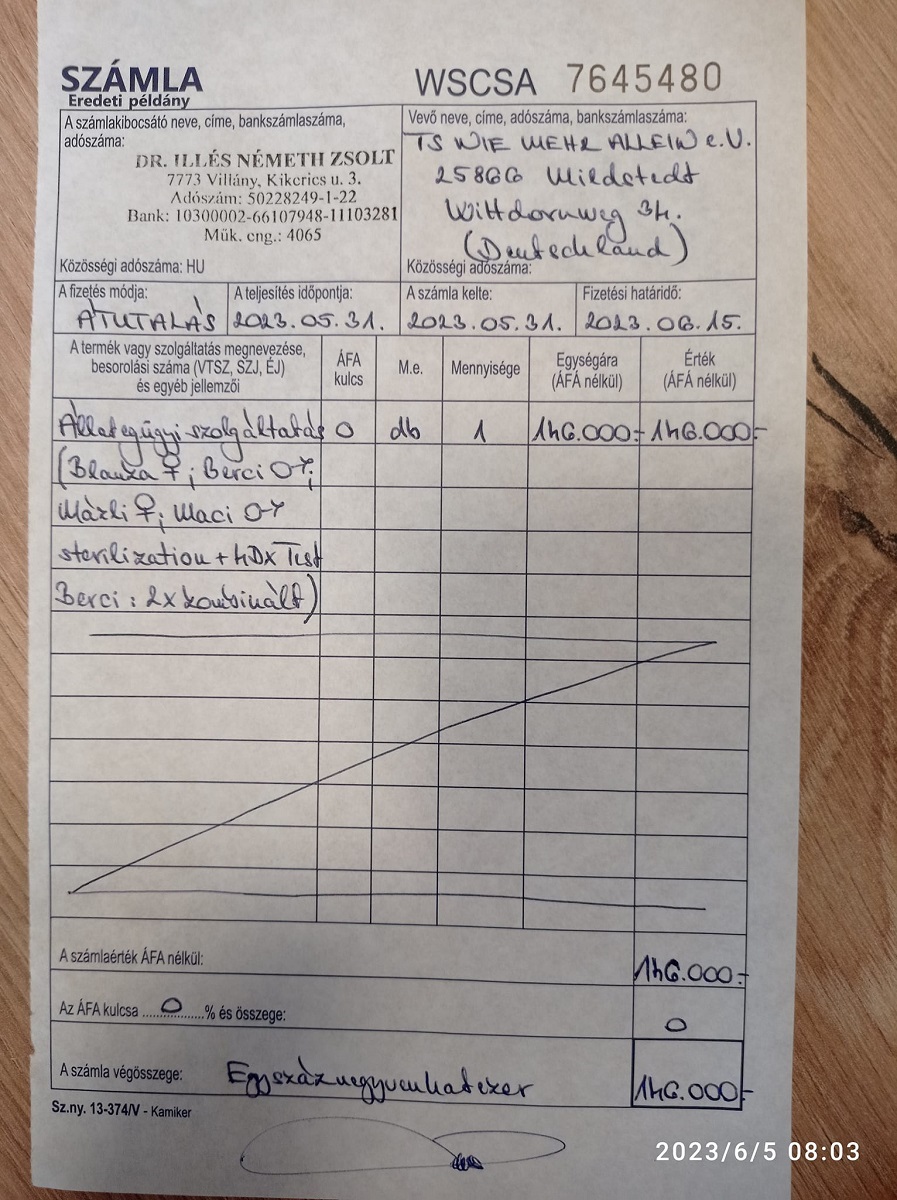 SZÁMLA
Eredeti példány
WSCSA 7645480
A számlakibocsátó neve, címe, bankszámlaszáma,
adószáma:
DR. ILLÉS NÉMETH ZSOLT
7773 Villány, Kikerics u. 3.
Adószám: 50228249-1-22
Bank: 10300002-66107948-11103281
Műk. eng.: 4065
Közösségi adószáma: HU
Vevő neve, címe, adószáma, bankszámlaszáma:
TS NIE MEHR ALLEIN e.V.
25866 Mildstedt
Wittdornweg 34.
(Deutschland)
Közösségi adószáma:
A fizetés módja:
ÁTUTALÁS
A teljesítés időpontja:
2023.05.31.
A számla kelte:
2023.05.31.
Fizetési határidő:
2023.06.15.
A termék vagy szolgáltatás megnevezése,
besorolási száma (VTSZ, SZJ, ÉJ)
és egyéb jellemzői
ÁFA
kulcs
M.e.
Mennyisége
Egységára
(ÁFA nélkül)
Érték
(ÁFA nélkül)
Állategügyi szolgáltatás 0 db 1 146.000:- 146.000:-
(Blanza ♀; Berci ♂;
Mázli ♀; Maci ♂
sterilization + 4Dx Test
Berci: 2x kombinált)
A számlaérték ÁFA nélkül: 146.000:-
Az ÁFA kulcsa ....0....% és összege: 0
A számla végösszege: Egyszáznegyvenhatezer 146.000:-
Sz.ny. 13-374/V - Kamiker
2023/6/5 08:03